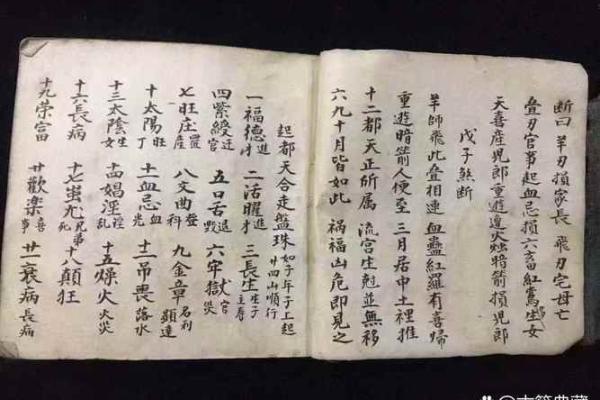 断曰 羊刃損家長 飛刃宅母亡
叠刃官事起血忌損六畜紅鸞生女
天喜産児郎重遊遭火燭暗箭損児郎
戊子煞断
羊師飛此叠相連 血蠱紅羅有喜歸
重遊暗箭人便至 三月居申土裡推
十二都天正所属 流宫生尅並無移
六九十月皆如此 禍福山危即見之
起都天合走盤珠 如子年子上起廿四山順行
一福德進 二活曜進才 三長生生子主寿
四紫綬迁官 五口舌退 六牢獄官災
七旺庄產 八文曲登科 九金章名利顕達
十太陽旺丁 十一血忌血光 十二吊畏落水
十三太陰生女 十四娼淫淫乱 十五燥火火災
十六長病 十七蚩尤兄弟死 十八顛狂
十九榮富 廿歡樂喜事 廿一衰病長病